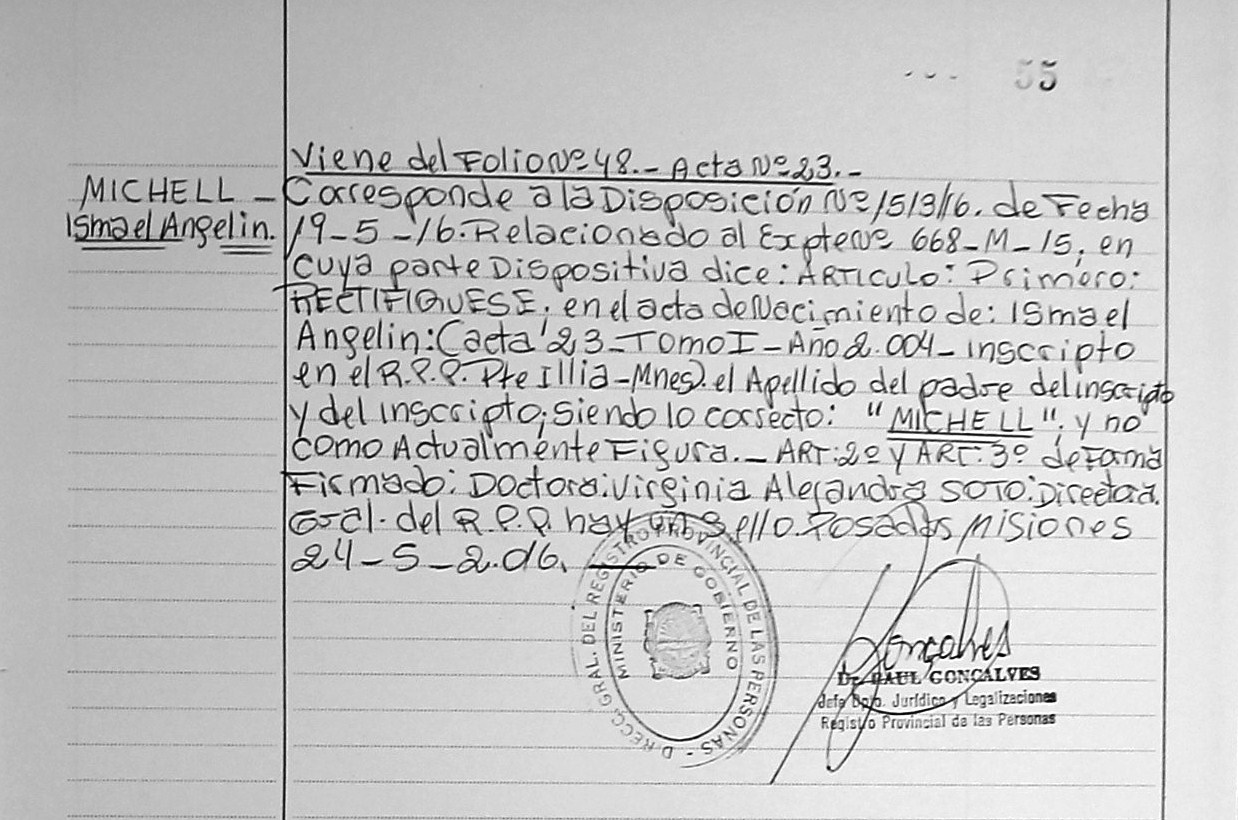 55
Viene del Folio Nº 48.- Acta Nº 23.-
MICHELL -
Ismael Angelin.
Corresponde a la Disposición Nº 1513/16. de Fecha
19-5-16. Relacionado al Expte Nº 668-M-15, en
cuya parte Dispositiva dice: ARTICULO: Primero:
RECTIFIQUESE, en el acta de Nacimiento de: Ismael
Angelin: (acta 23-Tomo I-Año 2.004-inscripto
en el R.P.P. Pte Illia-Mnes). el Apellido del padre del inscripto
y del inscripto; siendo lo correcto: "MICHELL"; y no
como Actualmente Figura.- ART: 2º y ART: 3º de Forma
Firmado: Doctora: Virginia Alejandra SOTO: Directora.
Gral. del R.P.P. hay un Sello. Posadas Misiones
24-5-2.016.
DIRECC. GRAL. DEL REGISTRO PROVINCIAL DE LAS PERSONAS -
MINISTERIO DE GOBIERNO
Gonçalves
Dr. RAUL GONÇALVES
Jefe Dpto. Jurídico y Legalizaciones
Registro Provincial de las Personas